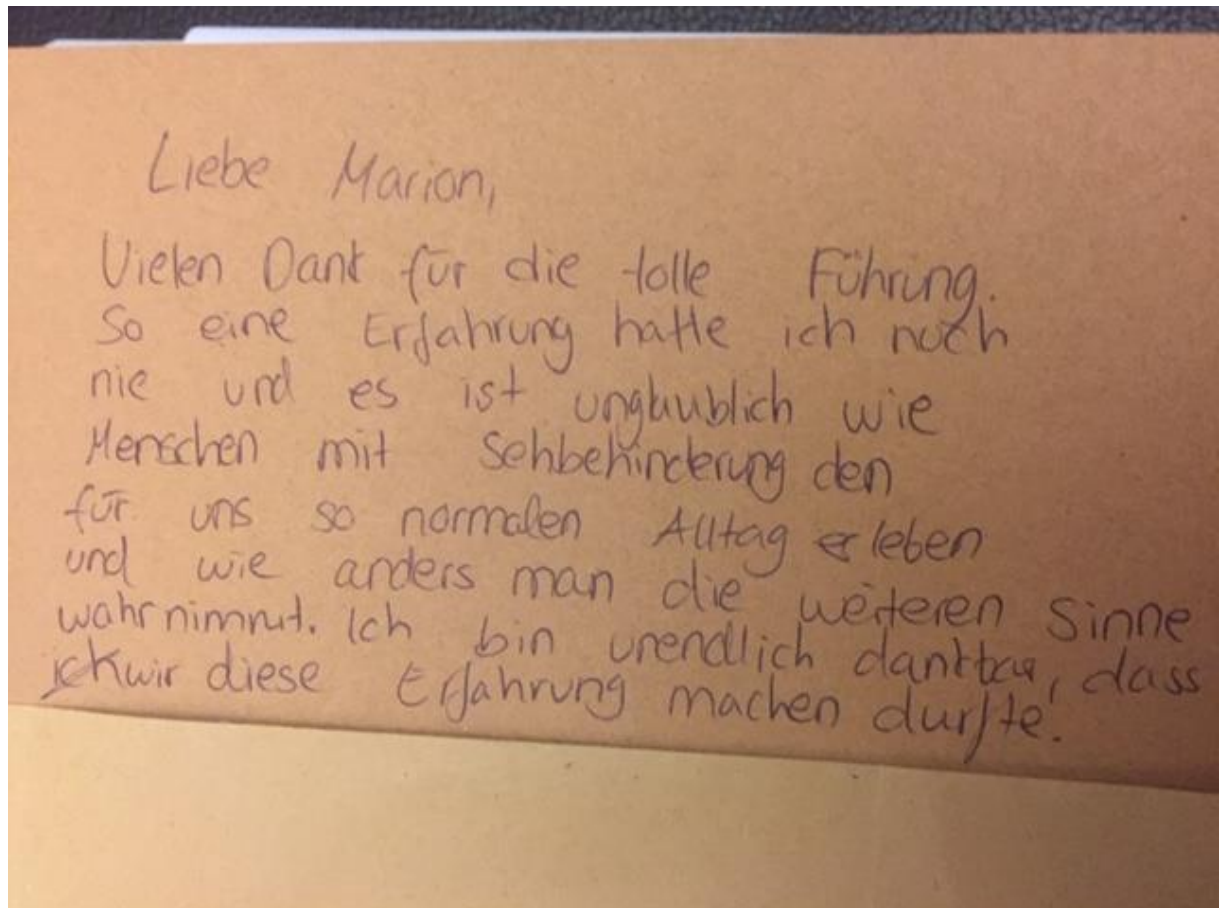 Liebe Marion,
Vielen Dank für die tolle Führung.
So eine Erfahrung hatte ich noch
nie und es ist unglaublich wie
Menschen mit Sehbehinderung den
für uns so normalen Alltag erleben
und wie anders man die weiteren Sinne
wahrnimmt. Ich bin unendlich dankbar, dass
wir diese Erfahrung machen durfte.